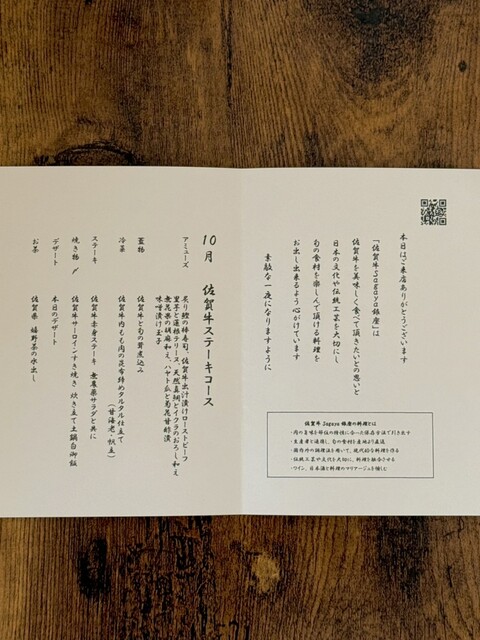 本日はご来店ありがとうございます
「佐賀牛sagaya銀座」は
佐賀牛を美味しく食べて頂きたいとの想いと
日本の文化や伝統工芸を大切にし
旬の食材を楽しんで頂ける料理を
お出し出来るよう心がけています
素敵な一夜になりますように
佐賀牛Sagaya銀座の料理とは
・肉の旨味を部位の特徴に合った保存方法で引き出す
・生産者と連携し、旬の食材を産地より直送
・国内外の調理法を用いて、現代的な料理を作る
・伝統工芸や文化を大切に、料理を融合させる
・ワイン、日本酒と料理のマリアージュを愉しむ
10月 佐賀牛ステーキコース
アミューズ 炙り鰹の棒寿司、佐賀牛出汁漬けローストビーフ
里芋と蓮根テリーヌ、天然真鯛とイクラのおろし和え
無花果の胡麻和え、ハヤト瓜と菊花甘酢漬
味噌漬け玉子
蓋物 佐賀牛と旬の茸煮込み
冷菜 佐賀牛内もも肉の昆布締めタルタル仕立て
(甘海老・帆立)
ステーキ 佐賀牛赤身ステーキ 無農薬サラダと共に
焼き物 〆 佐賀牛サーロインすき焼き 炊き立て土鍋白御飯
デザート 本日のデザート
お茶 佐賀県 嬉野茶の水出し